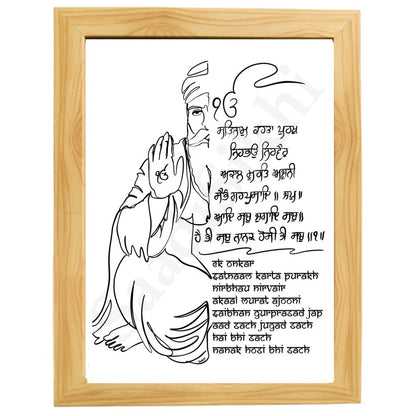 ੴ
ਸਤਿਨਾਮੁ ਕਰਤਾ ਪੁਰਖੁ
ਨਿਰਭਉ ਨਿਰਵੈਰੁ
ਅਕਾਲ ਮੂਰਤਿ ਅਜੂਨੀ
ਸੈਭੰ ਗੁਰਪ੍ਰਸਾਦਿ ॥ ਜਪੁ ॥
ਆਦਿ ਸਚੁ ਜੁਗਾਦਿ ਸਚੁ ॥
ਹੈ ਭੀ ਸਚੁ ਨਾਨਕ ਹੋਸੀ ਭੀ ਸਚੁ ॥੧॥
ੴ
ek onkar
satnaam karta purakh
nirbhau nirvair
akaal murat ajooni
saibhan gurprasad jap
aad sach jugad sach
hai bhi sach
nanak hosi bhi sach